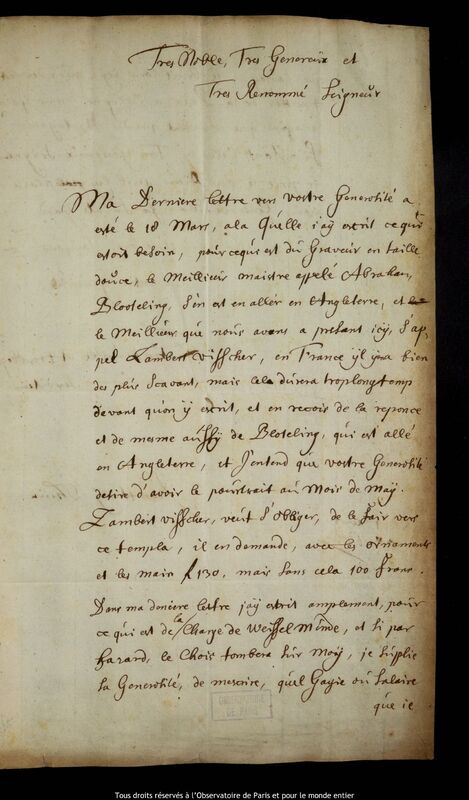 Tres Noble, Tres Genereux et
Tres Renommé Seigneur
Ma Derniere lettre vers vostre Generosité a
esté le 18 Mars, ala Quelle j'aÿ escrit ce qui
estoit besoin, pour ce qui est du Graveur en taille
douce, le Meillieur maistre appelé Abraham
Blooteling, s'en est en aller en Angleterre, et
le Meillieur que nous avons a presant icy, s'ap,
pel Lambert Visscher, en France yl y'ora bien
des plus scavant, mais cela durera trop long temp
devant qu'on ÿ escrit, et en recois de la reponce
et de mesme aussÿ de Bloteling, qui est allé
en Angleterre, et J'entend que vostre Generosité
desire d'avoir le pourtrait au Mois de Maÿ.
Lambert Visscher, veut s'obliger, de le fair vers
ce templa, il en demande, avec les ornaments
et les main f 130, mais sans cela 100 franc.
Dans ma dernere lettre j'aÿ escrit amplement, pour
ce qui est de la Charge de Weissel Munde, et si par
hazard, le Chois tombera sur Moÿ, je supplie
sa Generosité, de mescrire, quel Gagie ou Salaire
que ie
OBSERVATOIRE
DE PARIS
Tous droits réservés à l'Observatoire de Paris et pour le monde entier